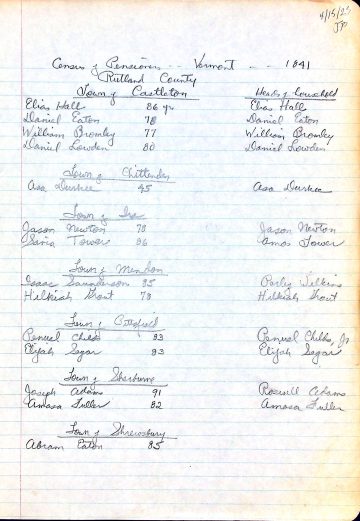 4/15/23
Census of Pensioners -- Vermont --- 1841
Rutland County
Town of Castleton Heads of household
Elias Hall 86 yr Elias Hall
Daniel Eaton 78 Daniel Eaton
William Bromley 77 William Bromley
Daniel Lowden 80 Daniel Lowden
Town of Chittenden
Asa Durkee 45 Asa Durkee
Town of Ira
Jason Newton 78 Jason Newton
Tower 86 Amos Tower
Town of Mendon
Isaac Saunderson 85 Parley Wilkins
Hilkiah Grout 78 Hilkiah Grout
Town of Pittsford
Penuel Childs 83 Penuel Childs, Jr
Elijah Segar 83 Elijah Segar
Town of Sherburne
Joseph Adams 91 Roswell Adams
Amasa Fuller 82 Amasa Fuller
Town of Shrewsbury
Abram Eaton 85